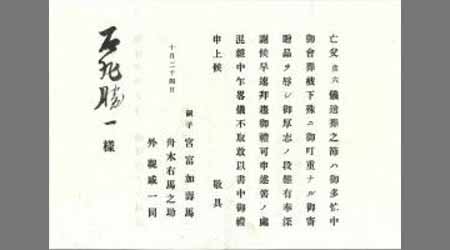 亡父六儀送葬之節ハ御多忙中
御會葬被下殊ニ御叮重ナル御寄
贈品ヲ辱シ御厚志ノ段難有奉深
謝候早速拜趨御禮可申述筈ノ處
混雜中乍畧儀不取敢以書中御禮
申上候 敬具
十月二十四日
嗣子 宮富加壽馬
舟木右馬之助
外親戚一同
石丸勝一樣